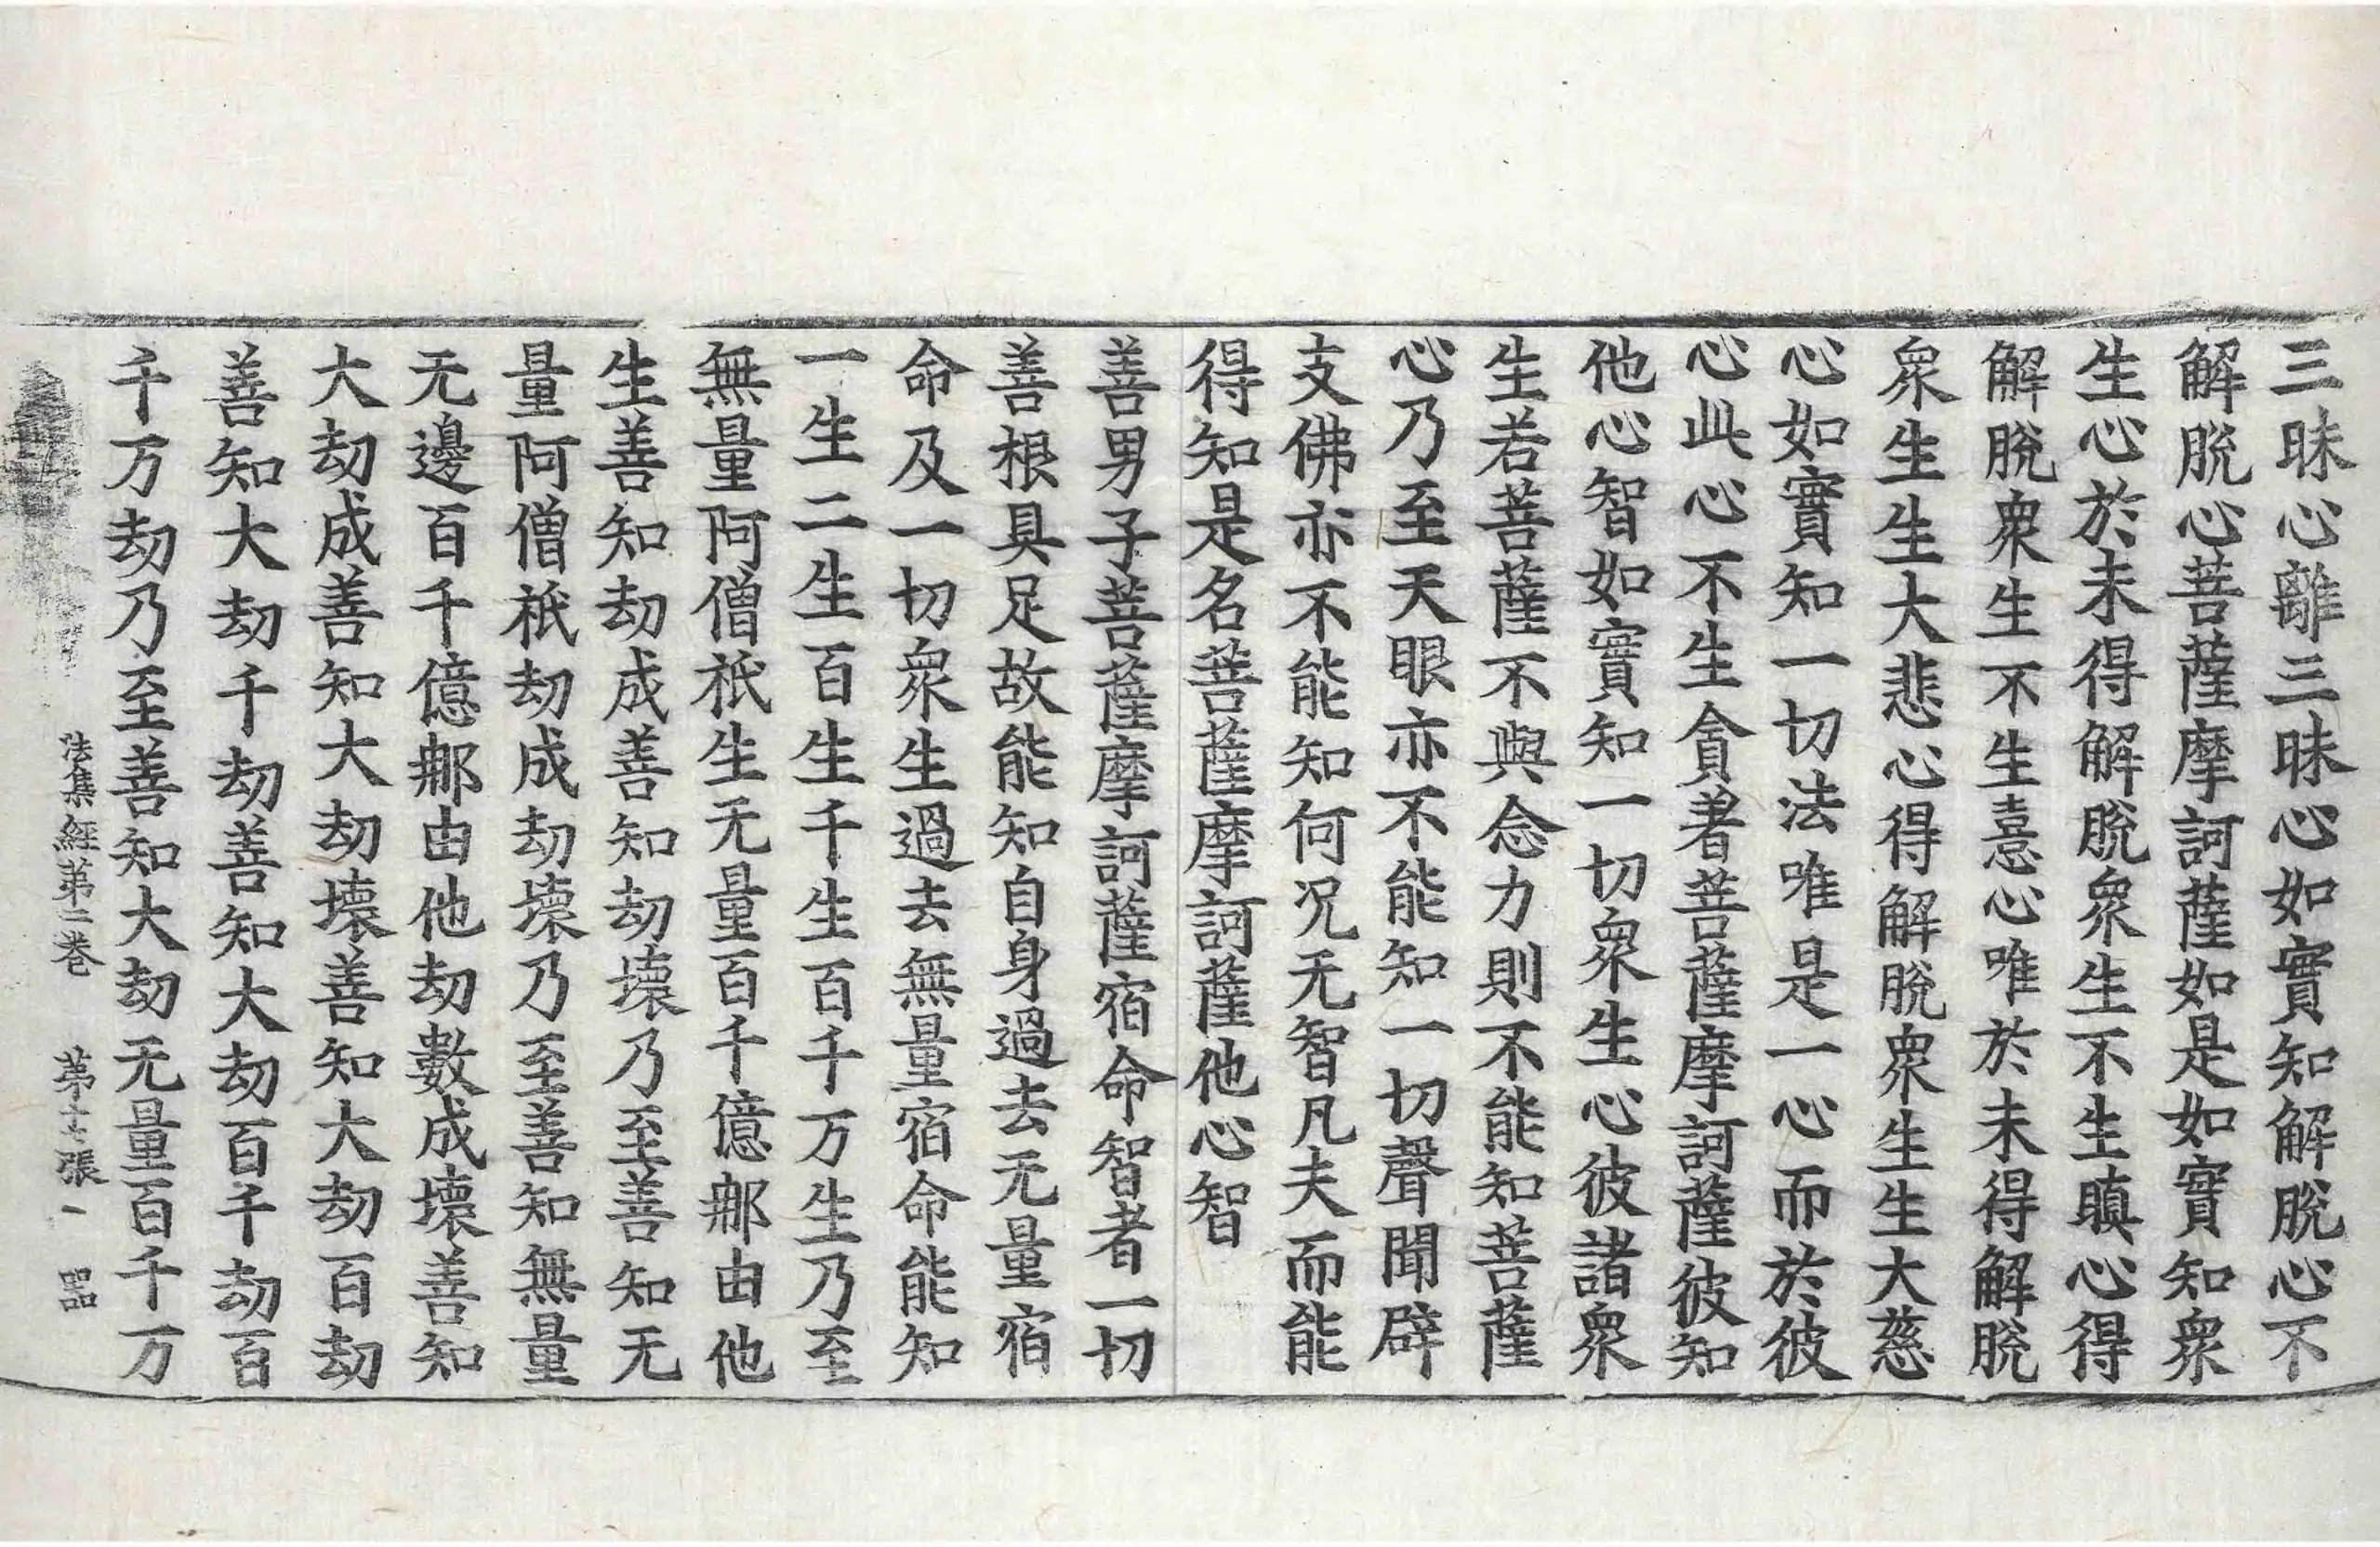 三昧心離三昧心如實知解脫心不
解脫心菩薩摩訶薩如是如實知衆
生心於未得解脫衆生不生瞋心得
解脫衆生不生憙心唯於未得解脫
衆生生大悲心得解脫衆生生大慈
心如實知一切法唯是一心而於彼
心此心不生貪著菩薩摩訶薩彼知
他心智如實知一切衆生心彼諸衆
生若菩薩不與念力則不能知菩薩
心乃至天眼亦不能知一切聲聞辟
支佛亦不能知何况无智凡夫而能
得知是名菩薩摩訶薩他心智
善男子菩薩摩訶薩宿命智者一切
善根具足故能知自身過去无量宿
命及一切衆生過去無量宿命能知
一生二生百生千生百千万生乃至
無量阿僧祇生无量百千億那由他
生善知劫成善知劫壞乃至善知无
量阿僧祇劫成劫壞乃至善知無量
无邊百千億那由他劫數成壞善知
大劫成善知大劫壞善知大劫百劫
善知大劫千劫善知大劫百千劫百
千万劫乃至善知大劫无量百千万
法集經第二卷 第十七張 一 器